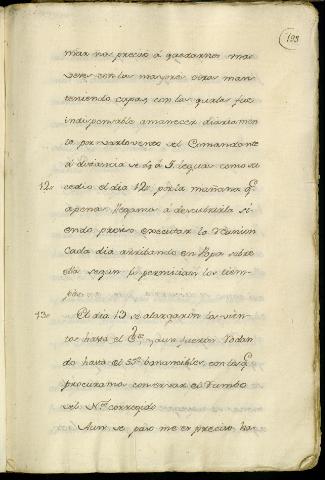 193
mar nos precisó á quedarnos ma
veres con las mayores otras man
teniendo capas, con las quales fue
indispensable amanecer diariamen
te por Sotavento del Comandante
á distancia de 2 ó 3 leguas como su
12. cedio el dia 12 por la mañana q.
apenas llegamos á descubrirla si
endo preciso executar la Reunion
Cada dia arribando en Popa sobre
ella segun lo permitian los tiem-
pos.
13. El dia 13 se alargaron los vien-
tos hasta el , y aun fueron Rodan
do hasta el bonancibles, con los q.
procuramos conservar el Rumbo
del N.te corregido
Aun se paso me es preciso ha-